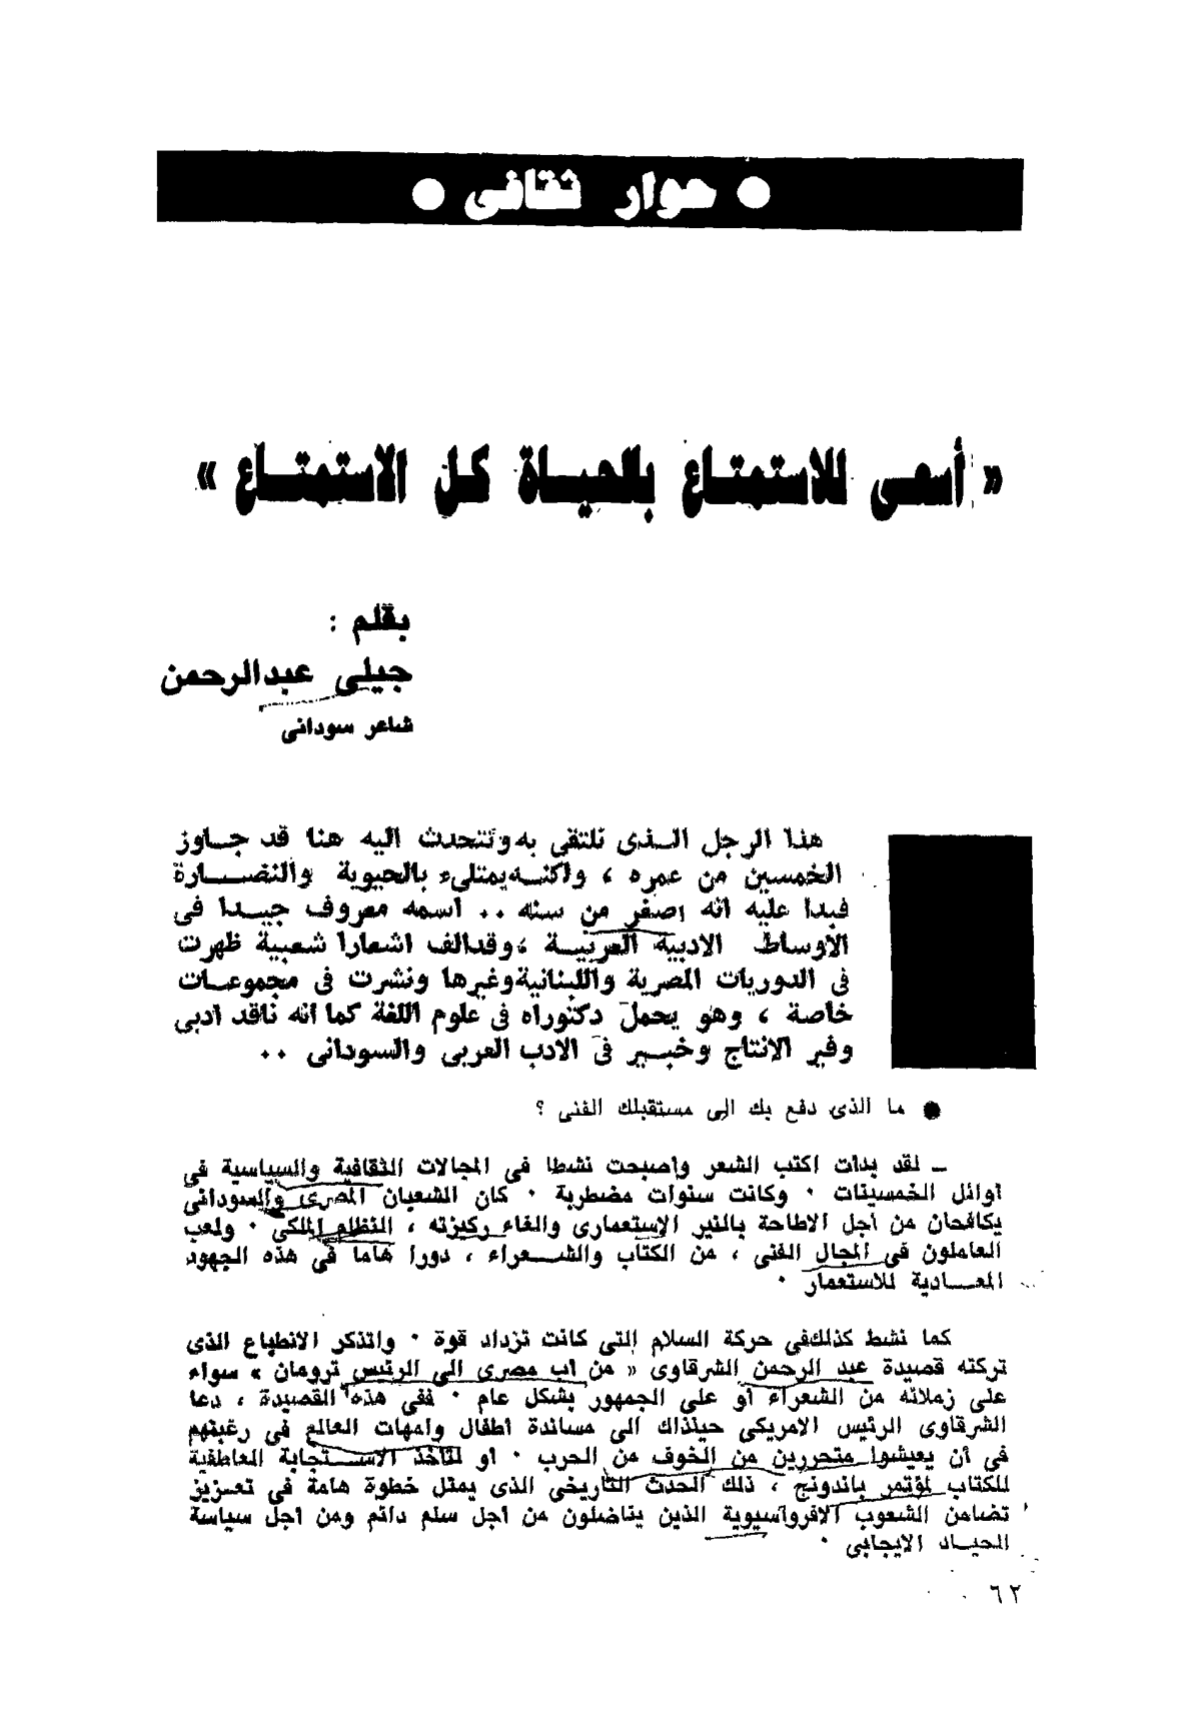 ● حوار ثقافى ●
« أسعى للاستمتاع بالحياة كل الاستمتاع »
بقلم :
جيلى عبدالرحمن
شاعر سودانى
هذا الرجل الذى نلتقى به ونتحدث اليه هنا قد جاوز
الخمسين من عمره ، ولكنه يمتلىء بالحيوية والنضارة
فبدا عليه انه اصغر من سنه .. اسمه معروف جيدا فى
الأوساط الادبية العربية ، وقد الف اشعارا شعبية ظهرت
فى الدوريات المصرية واللبنانية وغيرها ونشرت فى مجموعات
خاصة ، وهو يحمل دكتوراه فى علوم اللغة كما انه ناقد ادبى
وفير الانتاج وخبير فى الادب العربى والسودانى ..
● ما الذى دفع بك الى مستقبلك الفنى ؟
ــ لقد بدات اكتب الشعر واصبحت نشطا فى المجالات الثقافية والسياسية فى
أوائل الخمسينات ٠ وكانت سنوات مضطربة ٠ كان الشعبان المصرى والسودانى
يكافحان من أجل الاطاحة بالنير الاستعمارى والغاء ركيزته ، النظام الملكى ٠ ولعب
العاملون فى المجال الفنى ، من الكتاب والشعراء ، دورا هاما فى هذه الجهود
المعادية للاستعمار ٠
كما نشط كذلك فى حركة السلام التى كانت تزداد قوة ٠ واتذكر الانطباع الذى
تركته قصيدة عبد الرحمن الشرقاوى « من اب مصرى الى الرئيس ترومان » سواء
على زملائه من الشعراء أو على الجمهور بشكل عام ٠ ففى هذه القصيدة ، دعا
الشرقاوى الرئيس الامريكى حينذاك الى مساندة اطفال وامهات العالم فى رغبتهم
فى أن يعيشوا متحررين من الخوف من الحرب ٠ او لتأخذ الاستجابة العاطفية
للكتاب لمؤتمر باندونج ، ذلك الحدث التاريخى الذى يمثل خطوة هامة فى تعزيز
تضامن الشعوب الافروآسيوية الذين يناضلون من أجل سلم دائم ومن اجل سياسة
الحياد الايجابى ٠
٦٢